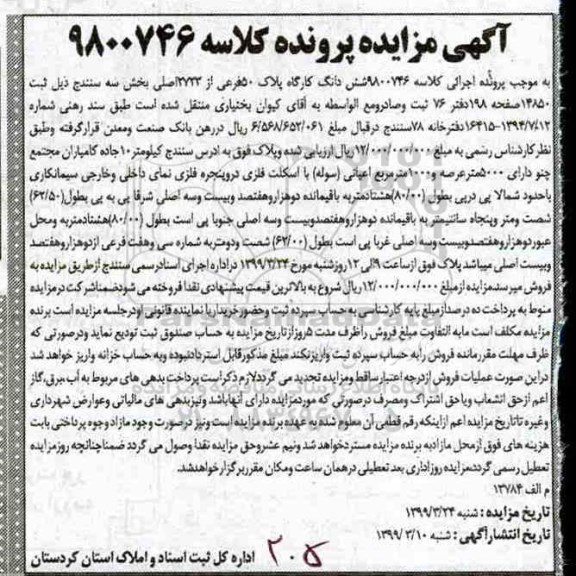 آگهی مزایده پرونده کلاسه ۹۸۰۰۷۴۶
به موجب پرونده اجرائی کلاسه ۹۸۰۰۷۴۶شش دانگ کارگاه پلاک ۵۰فرعی از ۲۷۲۳اصلی بخش سه سنندج ذیل ثبت
۱۴۸۵۰صفحه ۱۹۸دفتر ۷۶ ثبت وصادرومع الواسطه به آقای کیوان بختیاری منتقل شده است طبق سند رهنی شماره
۱۶۴۱۵-۱۳۹۴/۷/۱۲دفترخانه ۷۸سنندج درقبال مبلغ ۶/۵۶۸/۶۵۲/۰۶۱ ریال دررهن بانک صنعت ومعدن قرارگرفته وطبق
نظرکارشناس رسمی به مبلغ ۱۲/۰۰۰/۰۰۰/۰۰۰ریال ارزیابی شده وپلاک فوق به ادرس سنندج کیلومتر۱۰جاده کامیاران مجتمع
چنو دارای ۵۰۰۰مترعرصه و۱۰۰۰مترمربع اعیانی (سوله) با اسکلت فلزی دروپنجره فلزی نمای داخلی وخارجی سیمانکاری
باحدود شمالا پی درپی بطول (۸۰/۰۰)هشتادمتربه باقیمانده دوهزاروهفتصد وبیست وسه اصلی شرقا پی به پی بطول(۶۲/۵۰)
شصت ومتر وپنجاه سانتیمتر به باقیمانده دوهزاروهفتصدوبیست وسه اصلی جنوبا پی است بطول (۸۰/۰۰)هشتادمتربه ومحل
عبوردوهزاروهفتصدوبیست وسه اصلی غربا پی است بطول (۶۲/۰۰) شصت ودومتربه شماره سی وهفت فرعی ازدوهزاروهفتصد
وبیست اصلی میباشد پلاک فوق ازساعت ۹الی ۱۲ روزشنبه مورخ ۱۳۹۹/۳/۲۴ دراداره اجرای اسنادرسمی سنندج ازطریق مزایده به
فروش میرسدمزایده ازمبلغ ۱۲/۰۰۰/۰۰۰/۰۰۰ریال شروع به بالاترین قیمت پیشنهادی نقدا فروخته می شودضمناشرکت درمزایده
منوط به پرداخت ده درصدازمبلغ پایه کارشناسی به حساب سپرده ثبت وحضورخریداریا نماینده قانونی اودرجلسه مزایده است برنده
مزایده مکلف است مابه التفاوت مبلغ فروش راظرف مدت ۵روزازتاریخ مزایده به حساب صندوق ثبت تودیع نماید ودرصورتی که
ظرف مهلت مقررمانده فروش رابه حساب سپرده ثبت واریزنکند مبلغ مذکورقابل استردادنبوده وبه حساب خزانه واریز خواهد شد
دراین صورت عملیات فروش ازدرجه اعتبارساقط ومزایده تجدید می گرددلازم ذکراست پرداخت بدهی های مربوط به آب،برق،گاز
اعم ازحق انشعاب ویاحق اشتراک ومصرف درصورتی که موردمزایده دارای آنهاباشد ونیزبدهی های مالیاتی وعوارض شهرداری
وغیره تاتاریخ مزایده اعم ازاینکه رقم قطعی آن معلوم شده به عهده برنده مزایده است ونیز درصورت وجود مازاد وجوه پرداختی بابت
هزینه های فوق ازمحل مازادبه برنده مزایده مستردخواهدشد ونیم عشروحق مزایده نقدا وصول می گردد ضمناچنانچه روزمزایده
تعطیل رسمی گرددمزایده روزاداری بعد تعطیلی درهمان ساعت ومکان مقرربرگزارخواهدشد.
م الف ۱۳۷۸۴
تاریخ مزایده : شنبه ۱۳۹۹/۳/۲۴
تاریخ انتشارآگهی: شنبه ۱۳۹۹/۳/۱۰
اداره کل ثبت اسناد و املاک استان کردستان
۲۰۵